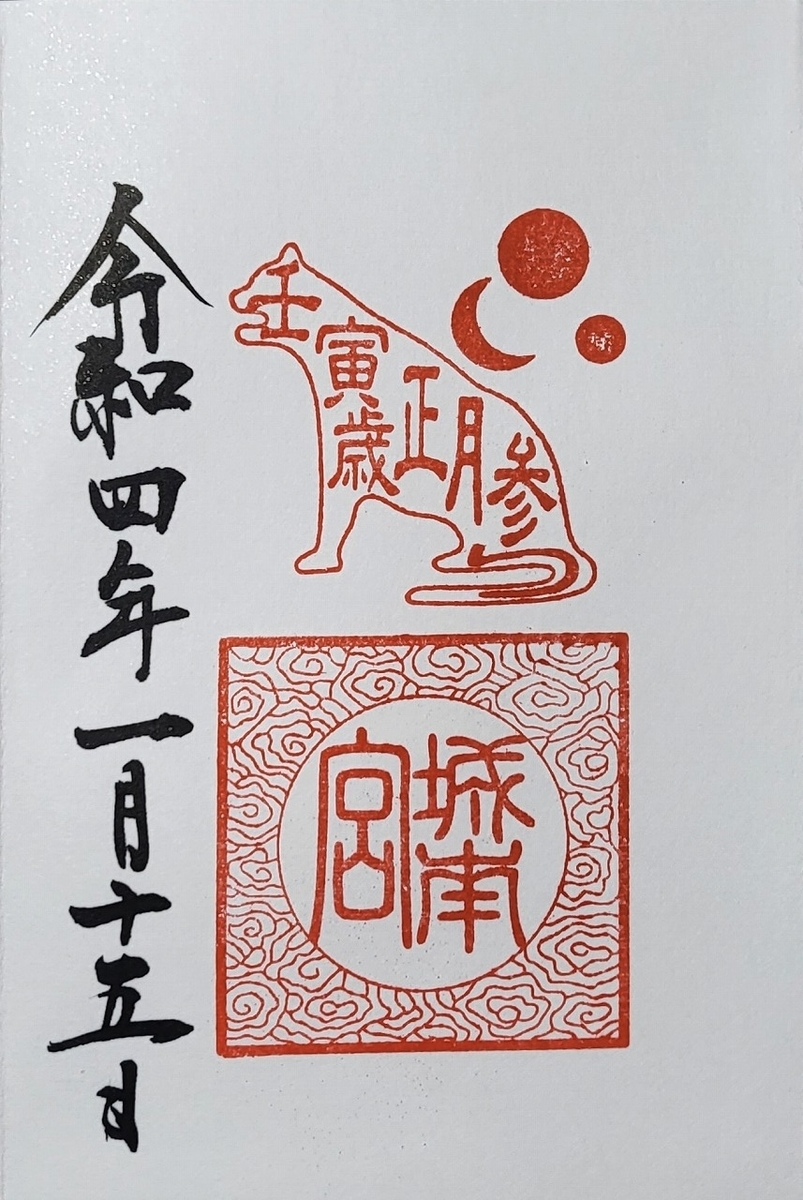 壬寅歳正月参
城南宮
令和四年一月十五日